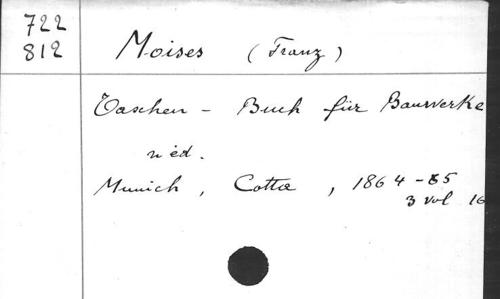 722
812
Moises (Franz)
Taschen - Buch für Bauwerke
n éd.
Munich, Cotta, 1864-65
3 vol 16